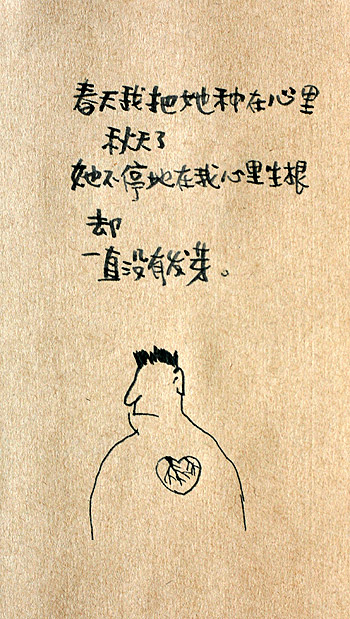 春天我把她种在心里
秋天了
她不停地在我心里生根
却
一直没有发芽。